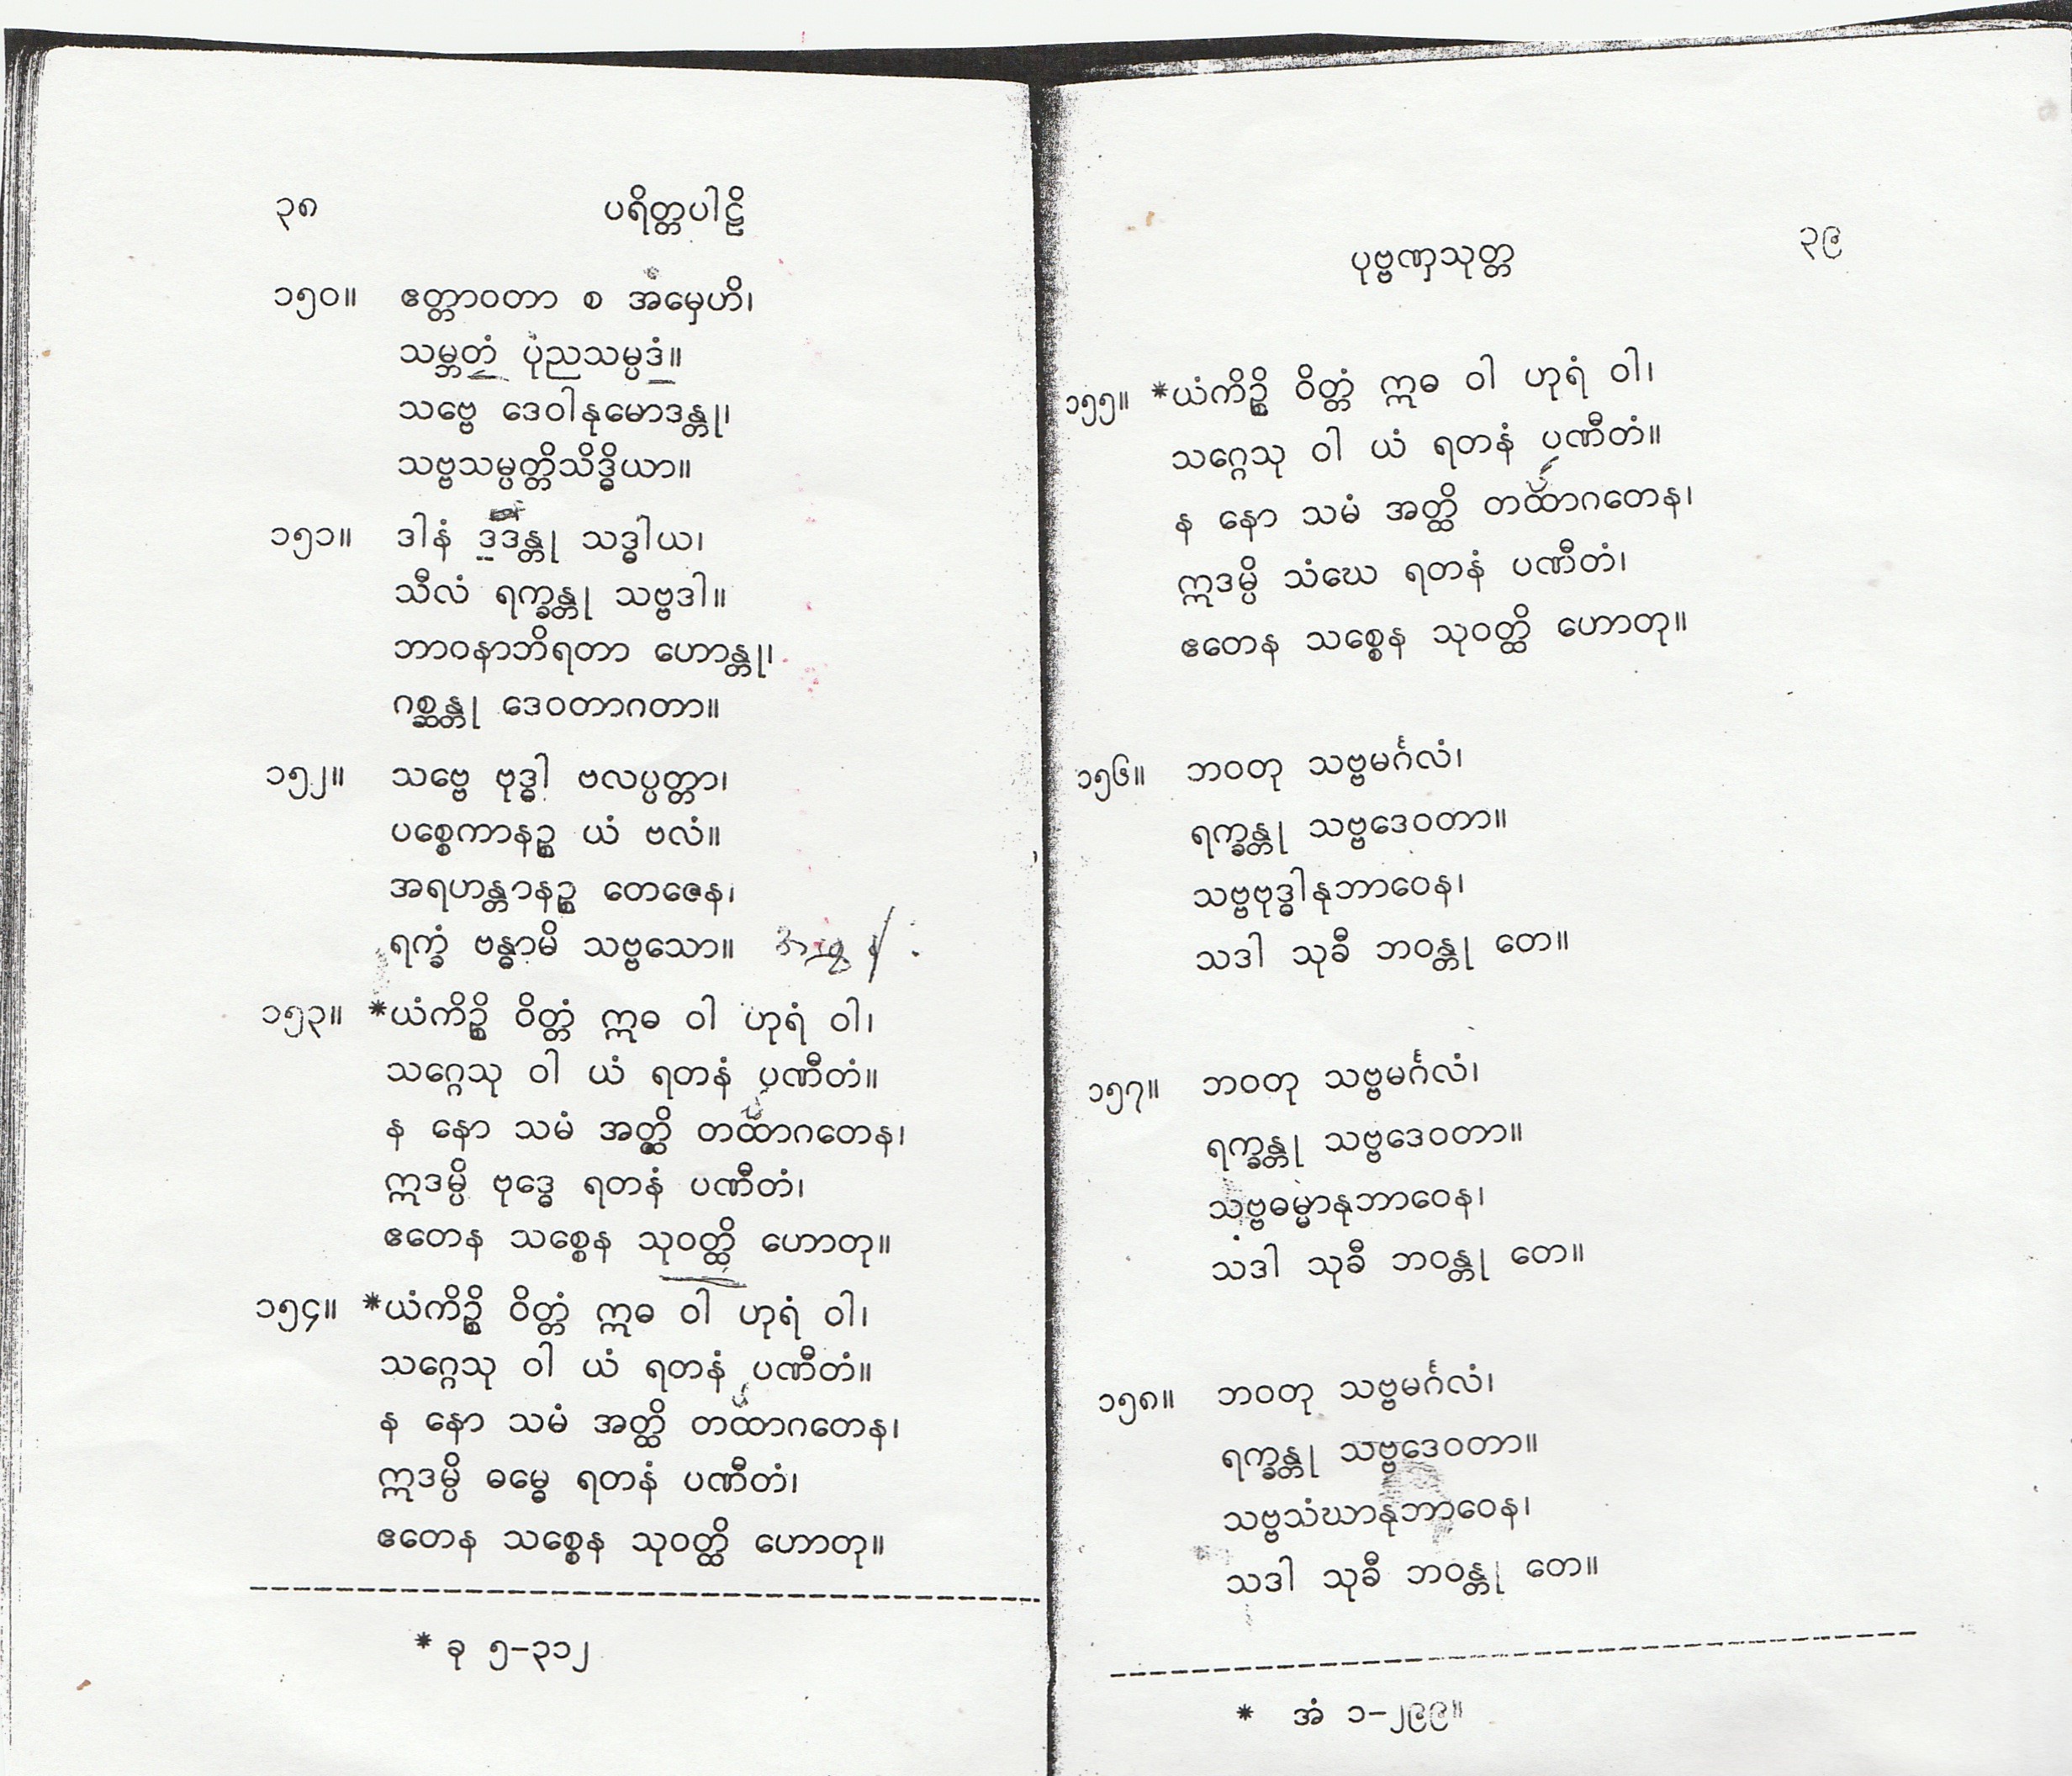 ၃၈ ပရိတ္တပါဠိ
၁၅၀။ ဧတ္တာဝတာ စ အမှေဟိ၊
သမ္ဘတံ ပုညသမ္ပဒံ။
သဗ္ဗေ ဒေဝါနုမောဒန္တု၊
သဗ္ဗသမ္ပတ္တိသိဒ္ဓိယာ။
၁၅၁။ ဒါနံ ဒဒန္တု သဒ္ဓါယ၊
သီလံ ရက္ခန္တု သဗ္ဗဒါ။
ဘာဝနာဘိရတာ ဟောန္တု၊
ဂစ္ဆန္တု ဒေဝတာဂတာ။
၁၅၂။ သဗ္ဗေ ဗုဒ္ဓါ ဗလပ္ပတ္တာ၊
ပစ္စေကာနဉ္စ ယံ ဗလံ။
အရဟန္တာနဉ္စ တေဇေန၊
ရက္ခံ ဗန္ဓာမိ သဗ္ဗသော။
၁၅၃။ *ယံကိဉ္စိ ဝိတ္တံ ဣဓ ဝါ ဟုရံ ဝါ၊
သဂ္ဂေသု ဝါ ယံ ရတနံ ပဏီတံ။
န နော သမံ အတ္ထိ တထာဂတေန၊
ဣဒမ္ပိ ဗုဒ္ဓေ ရတနံ ပဏီတံ၊
ဧတေန သစ္စေန သုဝတ္ထိ ဟောတု။
၁၅၄။ *ယံကိဉ္စိ ဝိတ္တံ ဣဓ ဝါ ဟုရံ ဝါ၊
သဂ္ဂေသု ဝါ ယံ ရတနံ ပဏီတံ။
န နော သမံ အတ္ထိ တထာဂတေန၊
ဣဒမ္ပိ ဓမ္မေ ရတနံ ပဏီတံ၊
ဧတေန သစ္စေန သုဝတ္ထိ ဟောတု။
* ခု ၅–၃၁၂
ပုဗ္ဗဏှသုတ္တ ၃၉
၁၅၅။ *ယံကိဉ္စိ ဝိတ္တံ ဣဓ ဝါ ဟုရံ ဝါ၊
သဂ္ဂေသု ဝါ ယံ ရတနံ ပဏီတံ။
န နော သမံ အတ္ထိ တထာဂတေန၊
ဣဒမ္ပိ သံဃေ ရတနံ ပဏီတံ၊
ဧတေန သစ္စေန သုဝတ္ထိ ဟောတု။
၁၅၆။ ဘဝတု သဗ္ဗမင်္ဂလံ၊
ရက္ခန္တု သဗ္ဗဒေဝတာ။
သဗ္ဗဗုဒ္ဓါနုဘာဝေန၊
သဒါ သုခီ ဘဝန္တု တေ။
၁၅၇။ ဘဝတု သဗ္ဗမင်္ဂလံ၊
ရက္ခန္တု သဗ္ဗဒေဝတာ။
သဗ္ဗဓမ္မာနုဘာဝေန၊
သဒါ သုခီ ဘဝန္တု တေ။
၁၅၈။ ဘဝတု သဗ္ဗမင်္ဂလံ၊
ရက္ခန္တု သဗ္ဗဒေဝတာ။
သဗ္ဗသံဃာနုဘာဝေန၊
သဒါ သုခီ ဘဝန္တု တေ။
* အံ ၁–၂၉၉။